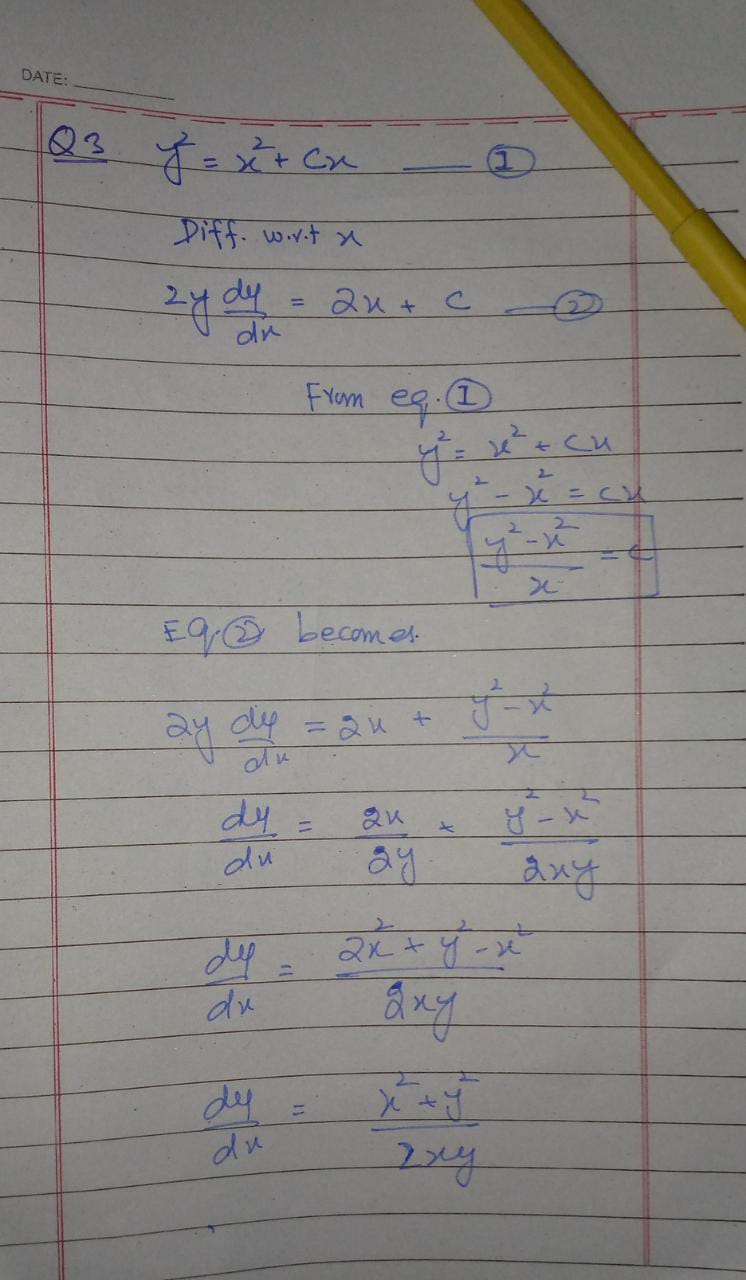 DATE:
Q3 y² = x² + Cx — ①
Diff. w.r.t x
2y dy/dx = 2x + C — ②
From eq. ①
y² = x² + cx
y² - x² = cx
(y² - x²)/x = C
Eq. ② becomes.
2y dy/dx = 2x + (y² - x²)/x
dy/dx = 2x/2y + (y² - x²)/2xy
dy/dx = (2x² + y² - x²)/2xy
dy/dx = (x² + y²)/2xy